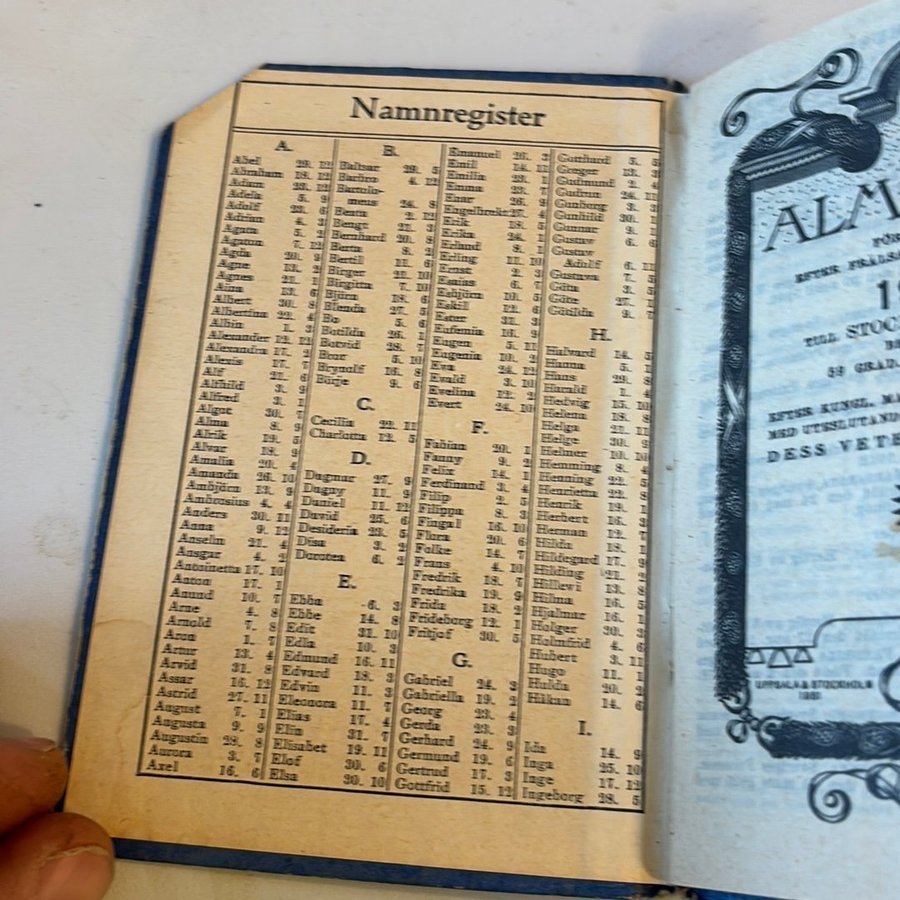 Namnregister
A.
Abel 29. 12
Abraham 18. 12
Adam 23. 12
Adela 5. 9
Adolf 23. 6
Adrian 4. 3
Agata 5. 2
Agaton 7. 12
Agda 20. 9
Agne 13. 2
Agnes 21. 1
Aina 13. 6
Albert 30. 8
Albertina 22. 4
Albin 1. 3
Alexander 12. 12
Alexandra 17. 2
Alexis 17. 7
Alf 21. 6
Alfhild 3. 9
Alfred 3. 1
Algot 30. 7
Alma 8. 9
Alrik 19. 5
Alvar 18. 9
Amalia 20. 4
Amanda 26. 10
Ambjörn 13. 9
Ambrosius 4. 4
Anders 30. 11
Anna 9. 12
Anselm 21. 4
Ansgar 4. 2
Antoinetta 17. 10
Anton 17. 1
Anund 10. 7
Arne 4. 8
Arnold 7. 8
Aron 1. 7
Artur 13. 4
Arvid 31. 8
Assar 16. 12
Astrid 27. 11
August 7. 1
Augusta 9. 9
Augustin 28. 8
Aurora 3. 7
Axel 16. 6
B.
Baltsar 29. 5
Barbro 4. 12
Bartolo-
meus 24. 8
Beata 2. 12
Bengt 21. 3
Bernhard 20. 8
Berta 8. 2
Bertil 11. 6
Birger 21. 10
Birgitta 7. 10
Björn 18. 6
Blenda 27. 5
Bo 5. 6
Botilda 26. 1
Botvid 28. 7
Bror 5. 10
Brynolf 16. 8
Börje 9. 6
C.
Cecilia 22. 11
Charlotta 12. 5
D.
Dagmar 27. 9
Dagny 11. 9
Daniel 11. 12
David 25. 6
Desideria 23. 5
Disa 3. 2
Dorotea 6. 2
E.
Ebba 6. 3
Ebbe 14. 8
Edit 31. 10
Edla 10. 3
Edmund 16. 11
Edvard 18. 3
Edvin 11. 3
Eleonora 11. 7
Elias 17. 4
Elin 31. 7
Elisabet 19. 11
Elof 30. 6
Elsa 30. 10
Emanuel 26. 3
Emil 14. 11
Emilia 23. 1
Emma 23. 7
Enar 26. 9
Engelbrekt 27. 4
Erik 18. 5
Erika 24. 1
Erland 8. 1
Erling 11. 10
Ernst 2. 3
Esaias 6. 7
Esbjörn 10. 5
Eskil 12. 6
Ester 31. 3
Eufemia 16. 9
Eugen 5. 11
Eugenia 10. 2
Eva 24. 12
Evald 3. 10
Evelina 12. 2
Evert 24. 10
F.
Fabian 20. 1
Fanny 9. 2
Felix 14. 1
Ferdinand 3. 4
Filip 2. 5
Filippa 8. 3
Fingal 16. 10
Flora 20. 6
Folke 14. 7
Frans 4. 10
Fredrik 18. 7
Fredrika 19. 9
Frida 18. 2
Frideborg 12. 1
Fritjof 30. 5
G.
Gabriel 24. 3
Gabriella 19. 2
Georg 23. 4
Gerda 23. 3
Gerhard 24. 9
Germund 19. 6
Gertrud 17. 3
Gottfrid 15. 12
Gotthard 5. 5
Greger 13. 3
Gudmund 2. 4
Gudrun 24. 11
Gunborg 3. 3
Gunhild 30. 1
Gunnar 9. 1
Gustav 6. 6
Gustav
Adolf 6. 11
Gustava 7. 5
Göta 3. 5
Göte 27. 1
Götilda 9. 7
H.
Halvard 14. 5
Hanna 5. 1
Hans 29. 8
Harald 1. 4
Hedvig 15. 10
Helena 18. 8
Helga 21. 11
Helge 30. 9
Helmer 10. 10
Hemming 8. 4
Henning 22. 5
Henrietta 22. 8
Henrik 19. 1
Herbert 16. 3
Herman 12. 7
Hilda 18. 1
Hildegard 17. 9
Hilding 21. 2
Hillevi 13. 8
Hilma 16. 5
Hjalmar 16. 1
Holger 30. 3
Holmfrid 4. 6
Hubert 3. 11
Hugo 11. 1
Hulda 20. 2
Håkan 14. 6
I.
Ida 14. 9
Inga 25. 10
Inge 17. 12
Ingeborg 28. 5
ALM
FÖR
EFTER FRÄLS
19
TILL STOC
59 GRAD.
EFTER KUNGL. MA
MED UTESLUTAND
DESS VETE
UPPSALA & STOCKHOLM